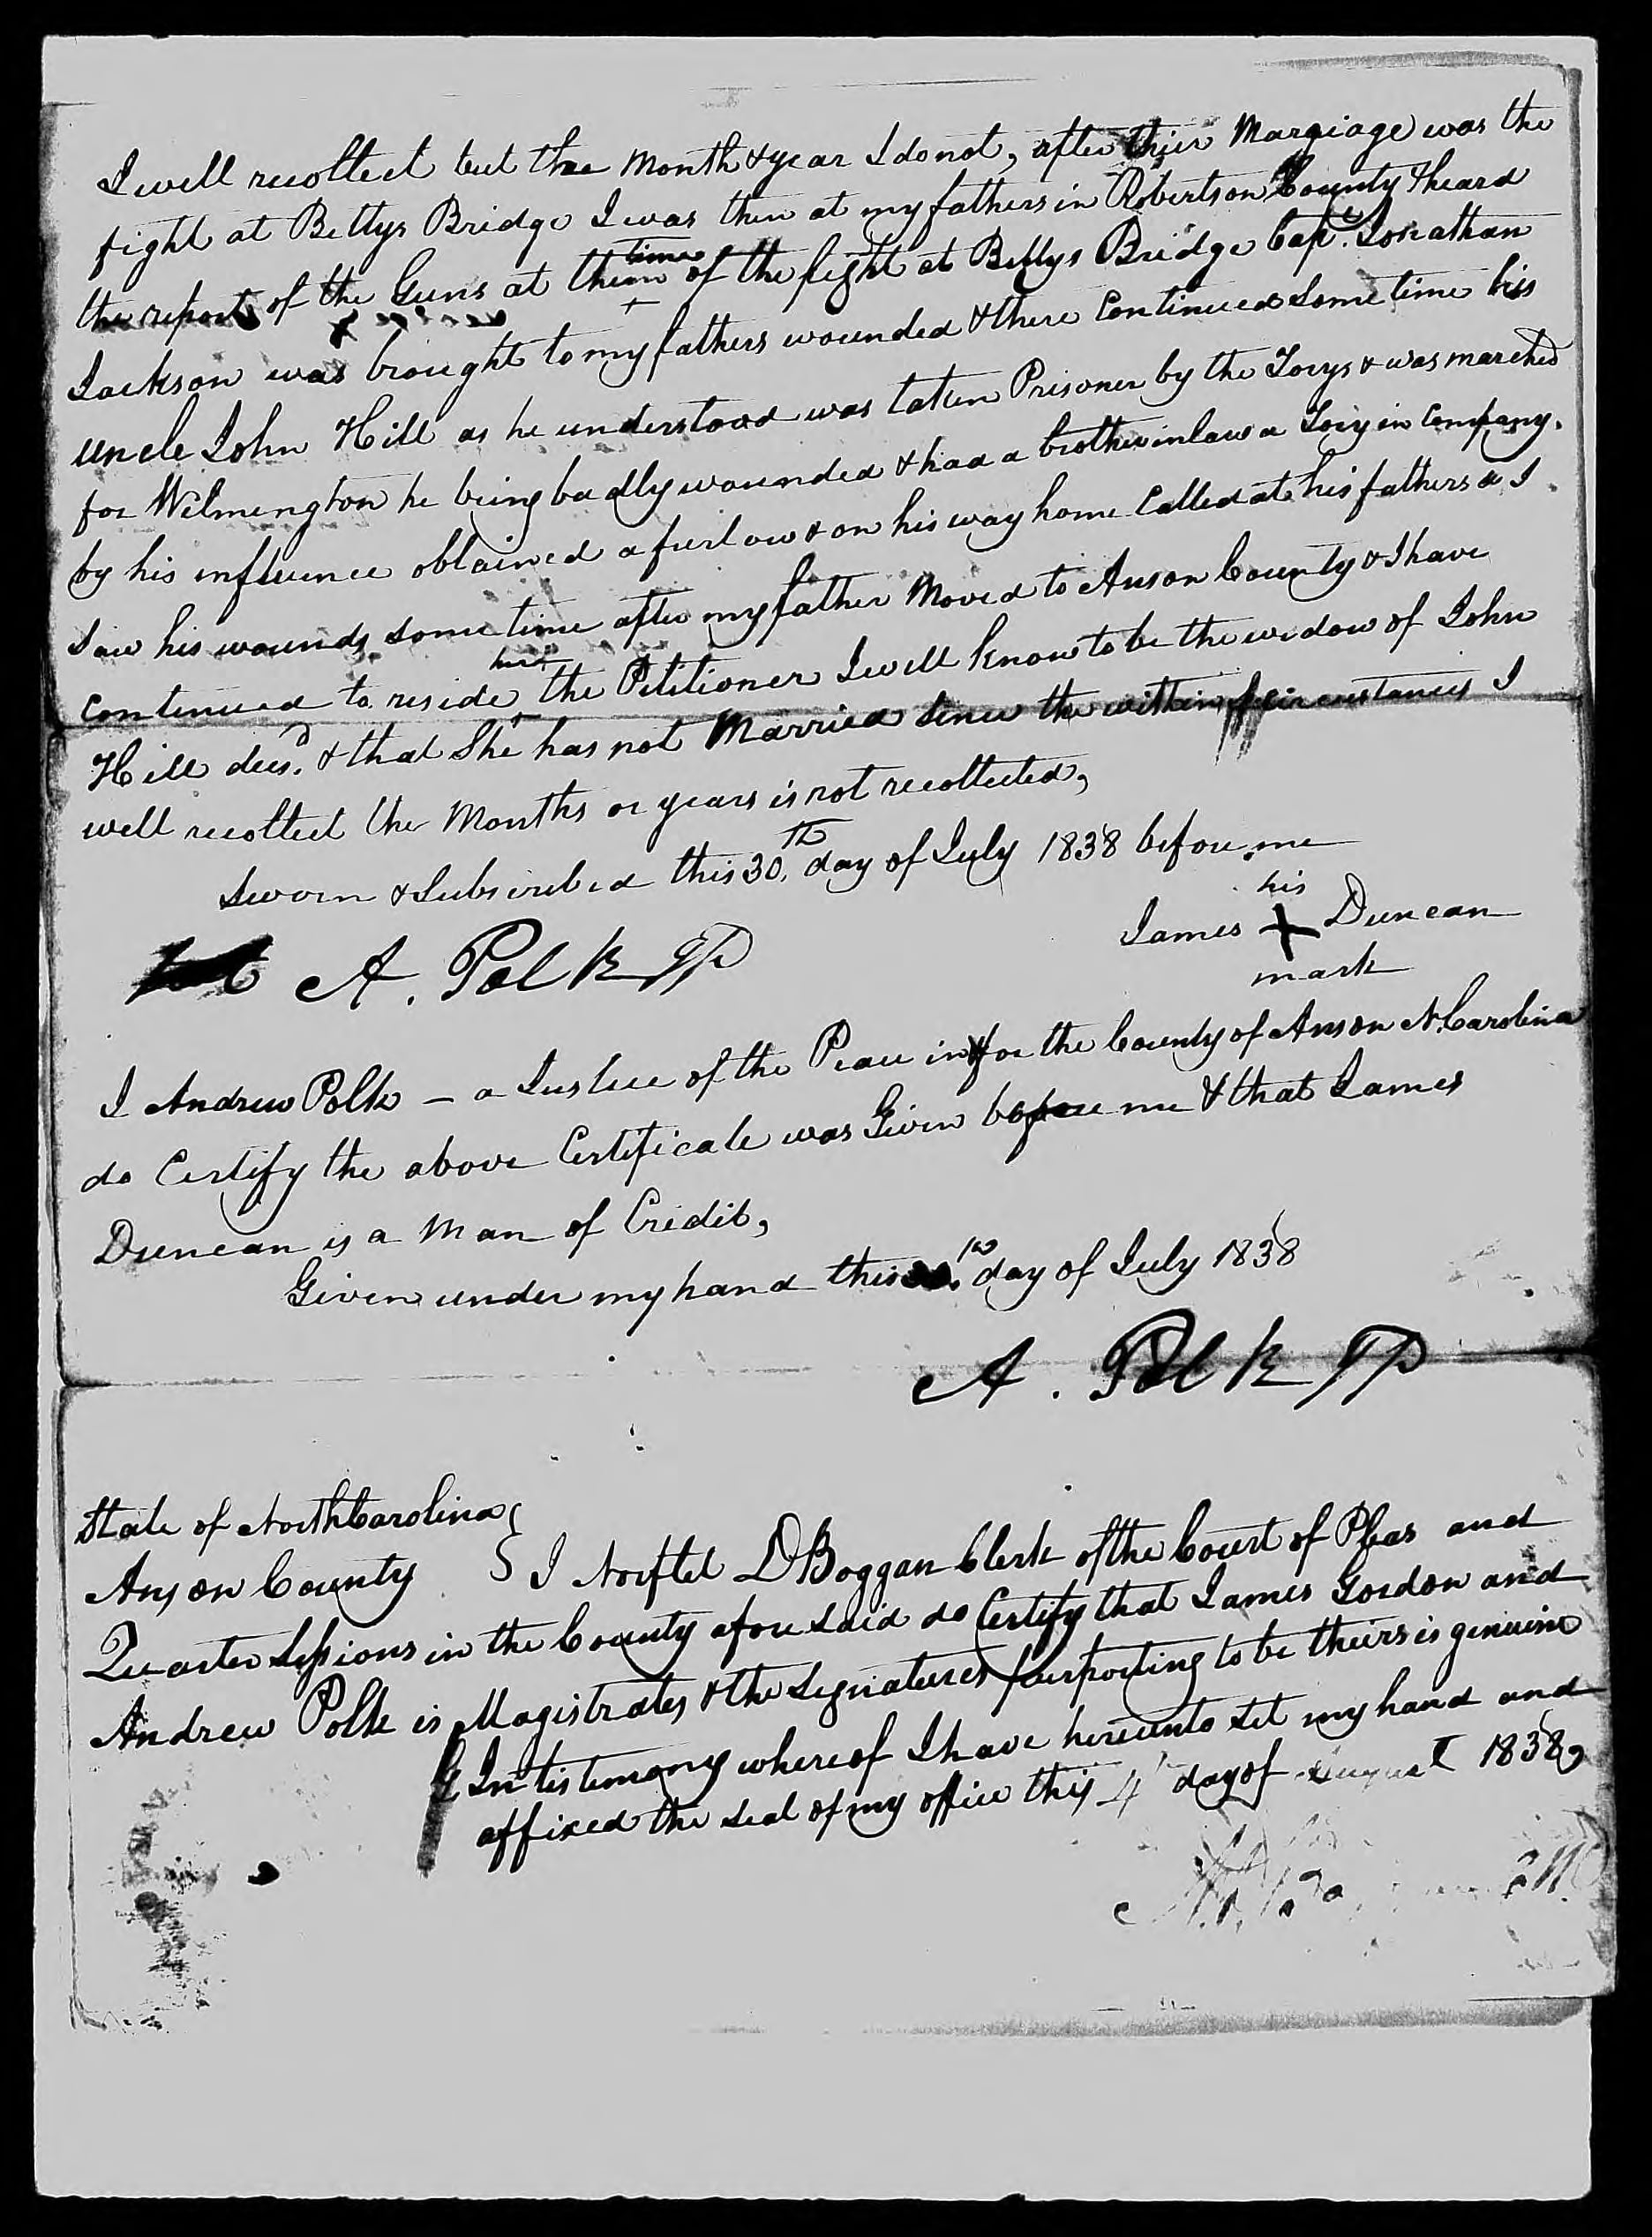 I well recollect but the Month & year I do not, after thier Marriage was the
fight at Bettys Bridge I was then at my fathers in Robertson County & heard
time
the report of the Guns at the of the fight at Bettys Bridge Capt. Jonathan
Jackson was brought to my fathers wounded & there Continued some time his
uncle John Hill as he understood was taken Prisoner by the Torys & was marched
for Wilmington he being badly wounded & had a brother in law a Tory in Company.
by his influence obtained a furlow & on his way home Called at his fathers & I
saw his wounds some time after my father Moved to Anson County & I have
here
Continued to reside, the Petitioner I well know to be the widow of John
Hill decd. & that She has not Married since the within circustances I
well recollect the Months or years is not recollected,
Sworn & Subscribed this 30th. day of July 1838 before me
his
James X Duncan
mark
A. Polk JP
I Andrew Polk – a Justice of the Peace in & for the County of Anson N. Carolina
do Certify the above Certificate was Given before me & that James
Duncan is a Man of Credit,
Given under my hand this day of July 1838
A. Polk JP
State of North Carolina
Anson County } I Norfleet D Boggan Clerk of the Court of Pleas and
Quarter Sessions in the County afore said do Certify that James Gordon and
Andrew Polk is Magistrates & the signatures purporting to be theirs is genuine
In testimony whereof I have hereunto set my hand and
affixed the seal of my office this 4 day of August 1838,